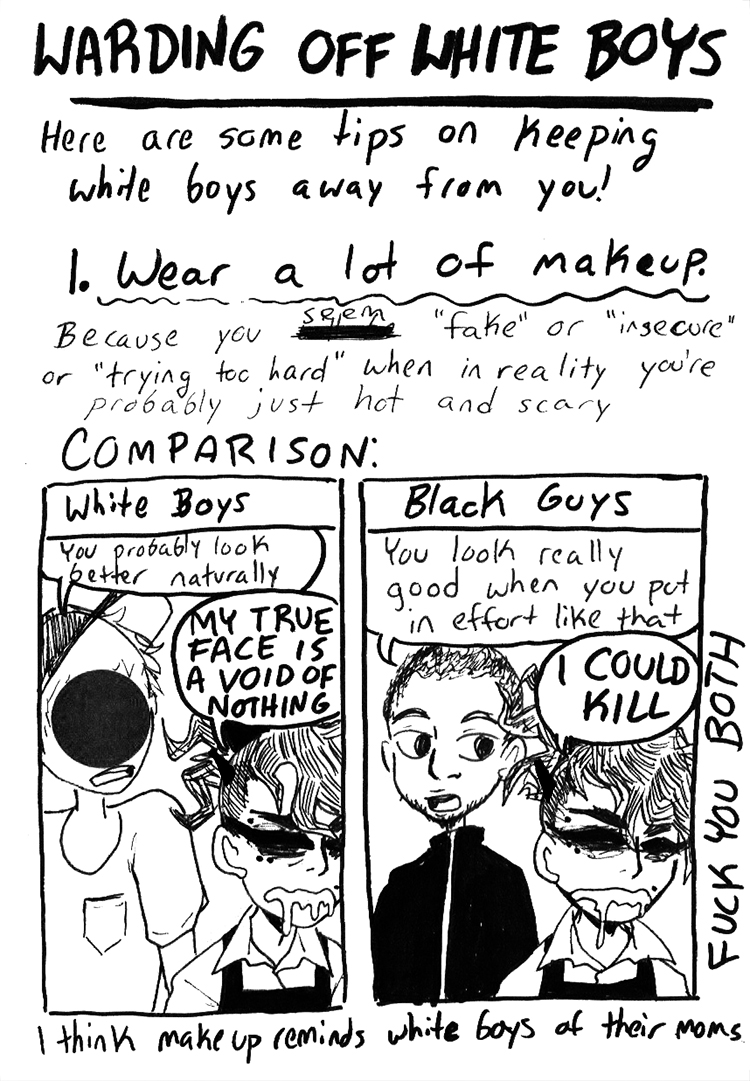 WARDING OFF WHITE BOYS
Here are some tips on keeping
white boys away from you!
1. Wear a lot of makeup.
Because you seem "fake" or "insecure"
or "trying too hard" when in reality you're
probably just hot and scary
COMPARISON:
White Boys
You probably look
better naturally
MY TRUE
FACE IS
A VOID OF
NOTHING
Black Guys
You look really
good when you put
in effort like that
I COULD
KILL
FUCK YOU BOTH
I think makeup reminds white boys of their moms